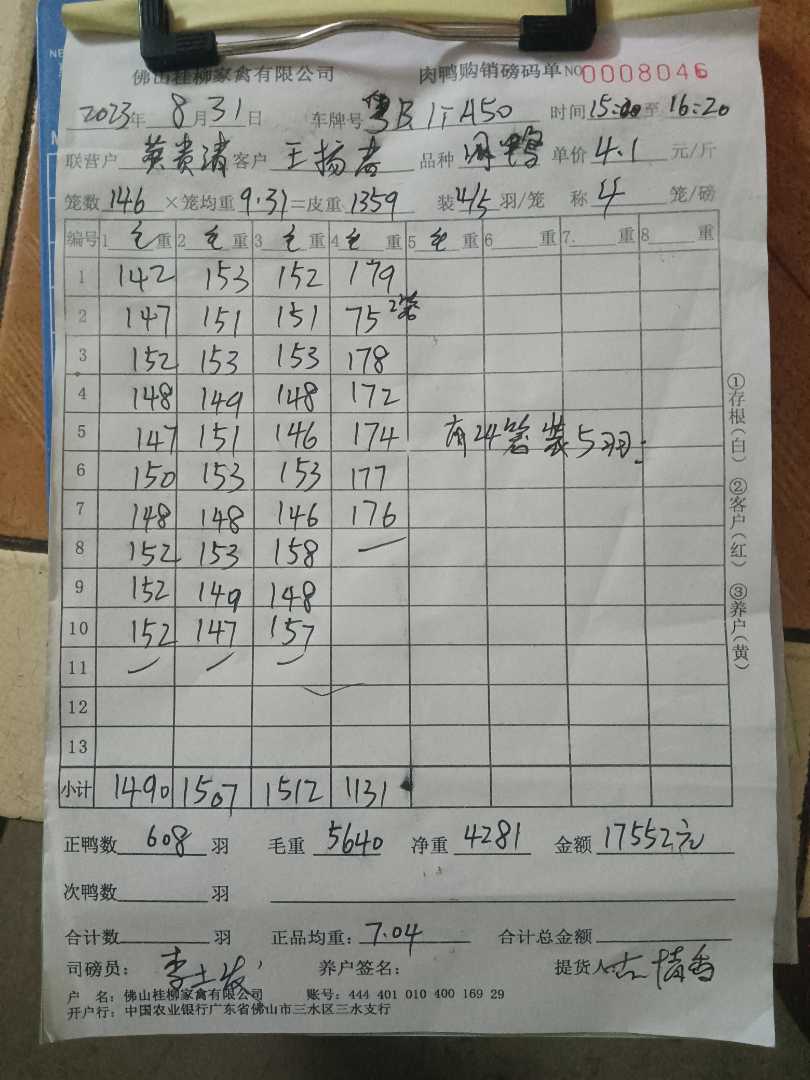 佛山桂柳家禽有限公司 肉鸭购销磅码单 NO 0008046
2023年 8月 31日 车牌号 粤B 1TA50 时间 15:00至 16:20
联营户 英贵清 客户 王扬 品种 鸭 单价 4.1 元/斤
笼数 146 ×笼均重 9.31 =皮重 1359 装 4/5 羽/笼 称 4 笼/磅
编号 1 毛 重 2 毛 重 3 毛 重 4 毛 重 5 毛 重 6 重 7. 重 8 重
1 142 153 152 179
2 147 151 151 75 2笼
3 152 153 153 178
4 148 149 148 172
5 147 151 146 174 有24笼装5羽
6 150 153 153 177
7 148 148 146 176
8 152 153 158 —
9 152 149 148
10 152 147 157
11 — — —
12
13
小计 1490 1507 1512 1131
正鸭数 608 羽 毛重 5640 净重 4281 金额 17552元
次鸭数 羽
合计数 羽 正品均重: 7.04 合计总金额
司磅员: 李士发 养户签名: 提货人:
户 名: 佛山桂柳家禽有限公司 账号: 444 401 010 400 169 29
开户行: 中国农业银行广东省佛山市三水区三水支行
①存根(白) ②客户(红) ③养户(黄)